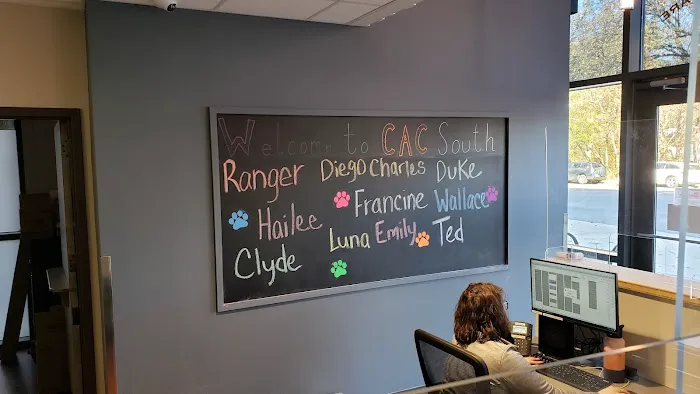 Welcome to CAC South
Ranger Diego Charles Duke
Hailee Francine Wallace
Clyde Luna Emily Ted